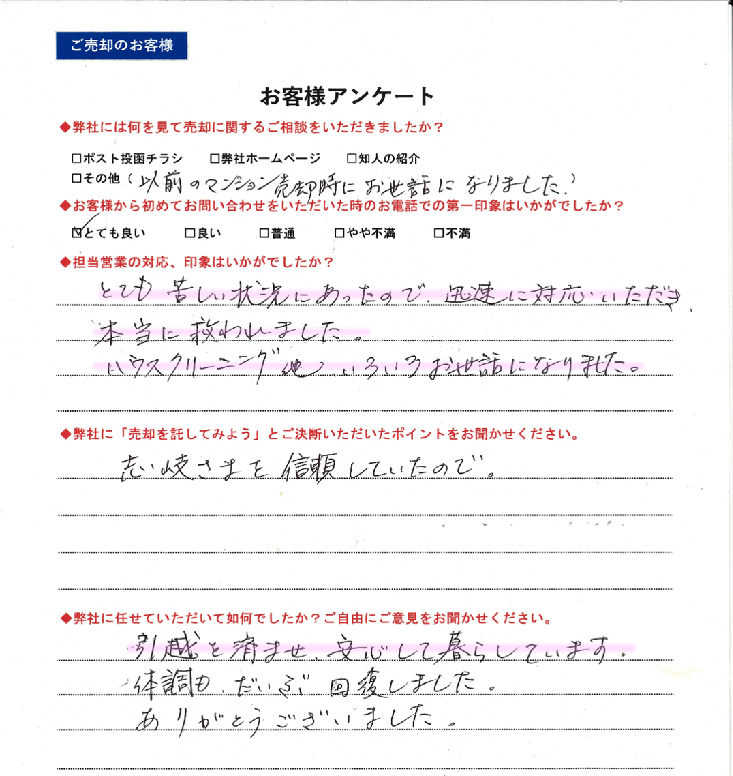 ご売却のお客様
お客様アンケート
◆弊社には何を見て売却に関するご相談をいただきましたか？
□ポスト投函チラシ □弊社ホームページ □知人の紹介
□その他（以前のマンション売却時にお世話になりました。）
◆お客様から初めてお問い合わせをいただいた時のお電話での第一印象はいかがでしたか？
☑とても良い □良い □普通 □やや不満 □不満
◆担当営業の対応、印象はいかがでしたか？
とても苦しい状況にあったので、迅速に対応いただき、
本当に救われました。
ハウスクリーニング他いろいろお世話になりました。
◆弊社に「売却を託してみよう」とご決断いただいたポイントをお聞かせください。
岐さまを信頼していたので。
◆弊社に任せていただいて如何でしたか？ご自由にご意見をお聞かせください。
引越を済ませ、安心して暮らしています。
体調も、だいぶ回復しました。
ありがとうございました。